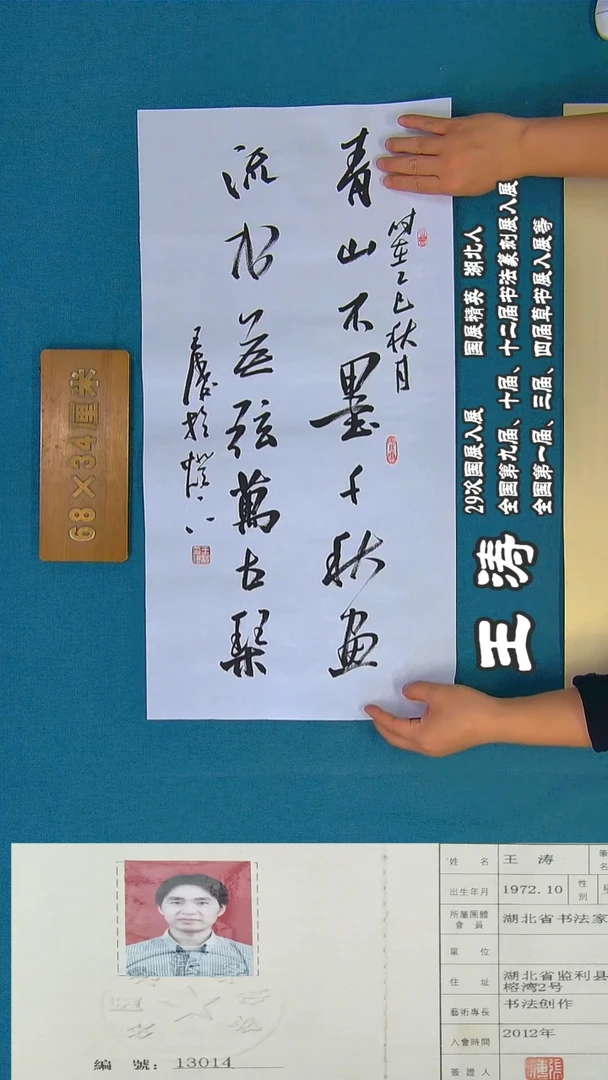 青山不墨千秋画
流水无弦萬古琴
时在乙巳秋月
王涛
68×34厘米
王涛
29次国展入展 国展精英 湖北人
全国第九届、十届、十二届书法篆刻展入展
全国第一届、三届、四届草书展入展等
姓 名 王 涛 筆名
出生年月 1972.10 性别
所屬團體會員 湖北省书法家
單 位
住 址 湖北省监利县
榕湾2号
藝術專長 书法创作
入會時間 2012年
簽證人
編 號: 13014